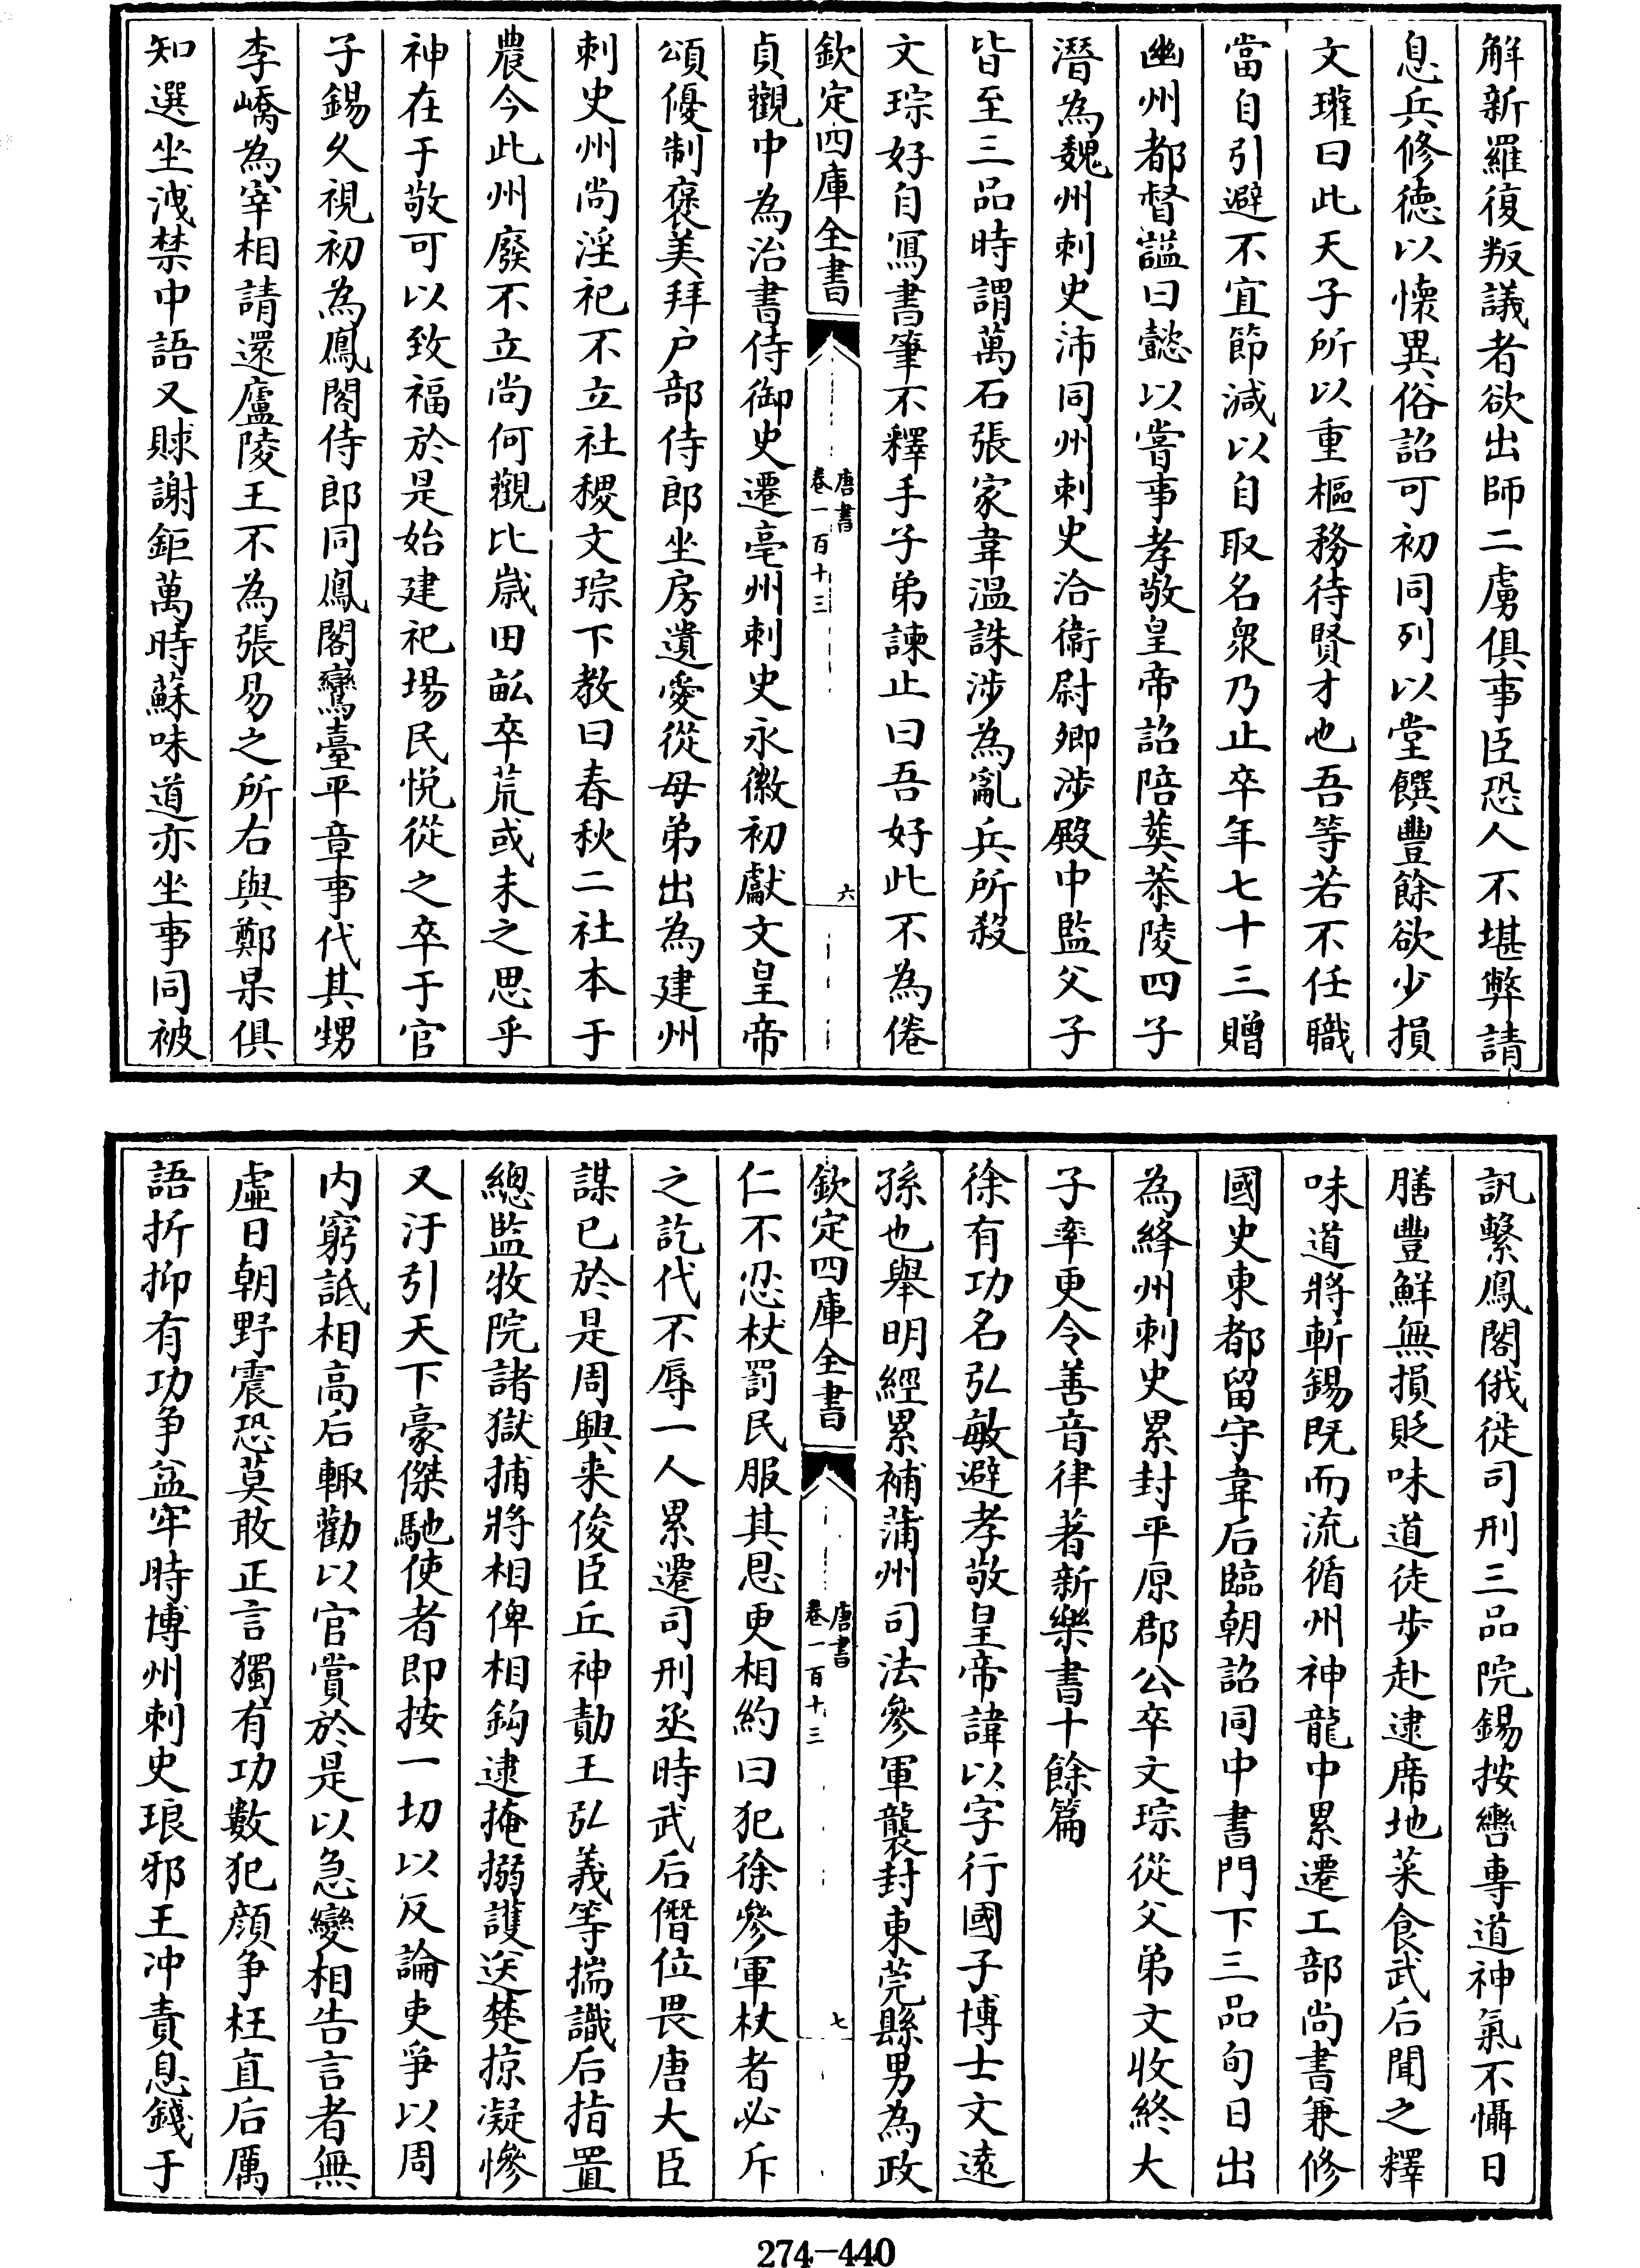 解新羅復叛議者欲出師二虜俱事臣恐人不堪弊請
息兵修德以懷異俗詔可初同列以堂饌豐餘欲少損
文瓘曰此天子所以重樞務待賢才也吾等若不任職
當自引避不宜節減以自取名衆乃止卒年七十三贈
幽州都督諡曰懿以嘗事孝敬皇帝詔陪葬恭陵四子
潛為魏州刺史沛同州刺史洽衞尉卿涉殿中監父子
皆至三品時謂萬石張家韋溫誅涉為亂兵所殺
文琮好自寫書筆不釋手子弟諫止曰吾好此不為倦
欽定四庫全書
唐書
卷一百十三
六
貞觀中為治書侍御史遷亳州刺史永徽初獻文皇帝
頌優制褒美拜户部侍郎坐房遺愛從母弟出為建州
刺史州尚淫祀不立社稷文琮下教曰春秋二社本于
農今此州廢不立尚何觀比歳田畝卒荒或未之思乎
神在于敬可以致福於是始建祀場民悅從之卒于官
子錫久視初為鳳閣侍郎同鳳閣鸞臺平章事代其甥
李嶠為宰相請還廬陵王不為張易之所右與鄭杲俱
知選坐洩禁中語又賕謝鉅萬時蘇味道亦坐事同被
訊繫鳳閣俄徙司刑三品院錫按轡專道神氣不懾日
膳豐鮮無損貶味道徒步赴逮席地菜食武后聞之釋
味道將斬錫既而流循州神龍中累遷工部尚書兼修
國史東都留守韋后臨朝詔同中書門下三品旬日出
為絳州刺史累封平原郡公卒文琮從父弟文收終大
子率更令善音律著新樂書十餘篇
徐有功名弘敏避孝敬皇帝諱以字行國子博士文遠
孫也舉明經累補蒲州司法參軍襲封東莞縣男為政
欽定四庫全書
唐書
卷一百十三
七
仁不忍杖罰民服其恩更相約曰犯徐參軍杖者必斥
之訖代不辱一人累遷司刑丞時武后僭位畏唐大臣
謀已於是周興来俊臣丘神勣王弘義等揣識后指置
總監牧院諸獄捕將相俾相鈎逮掩搦護送楚掠凝慘
又汙引天下豪傑馳使者即按一切以反論吏爭以周
内窮詆相高后輙勸以官賞於是以急變相告言者無
虛日朝野震恐莫敢正言獨有功數犯顔争枉直后厲
語折抑有功争益牢時博州刺史琅邪王冲責息錢于
274-440